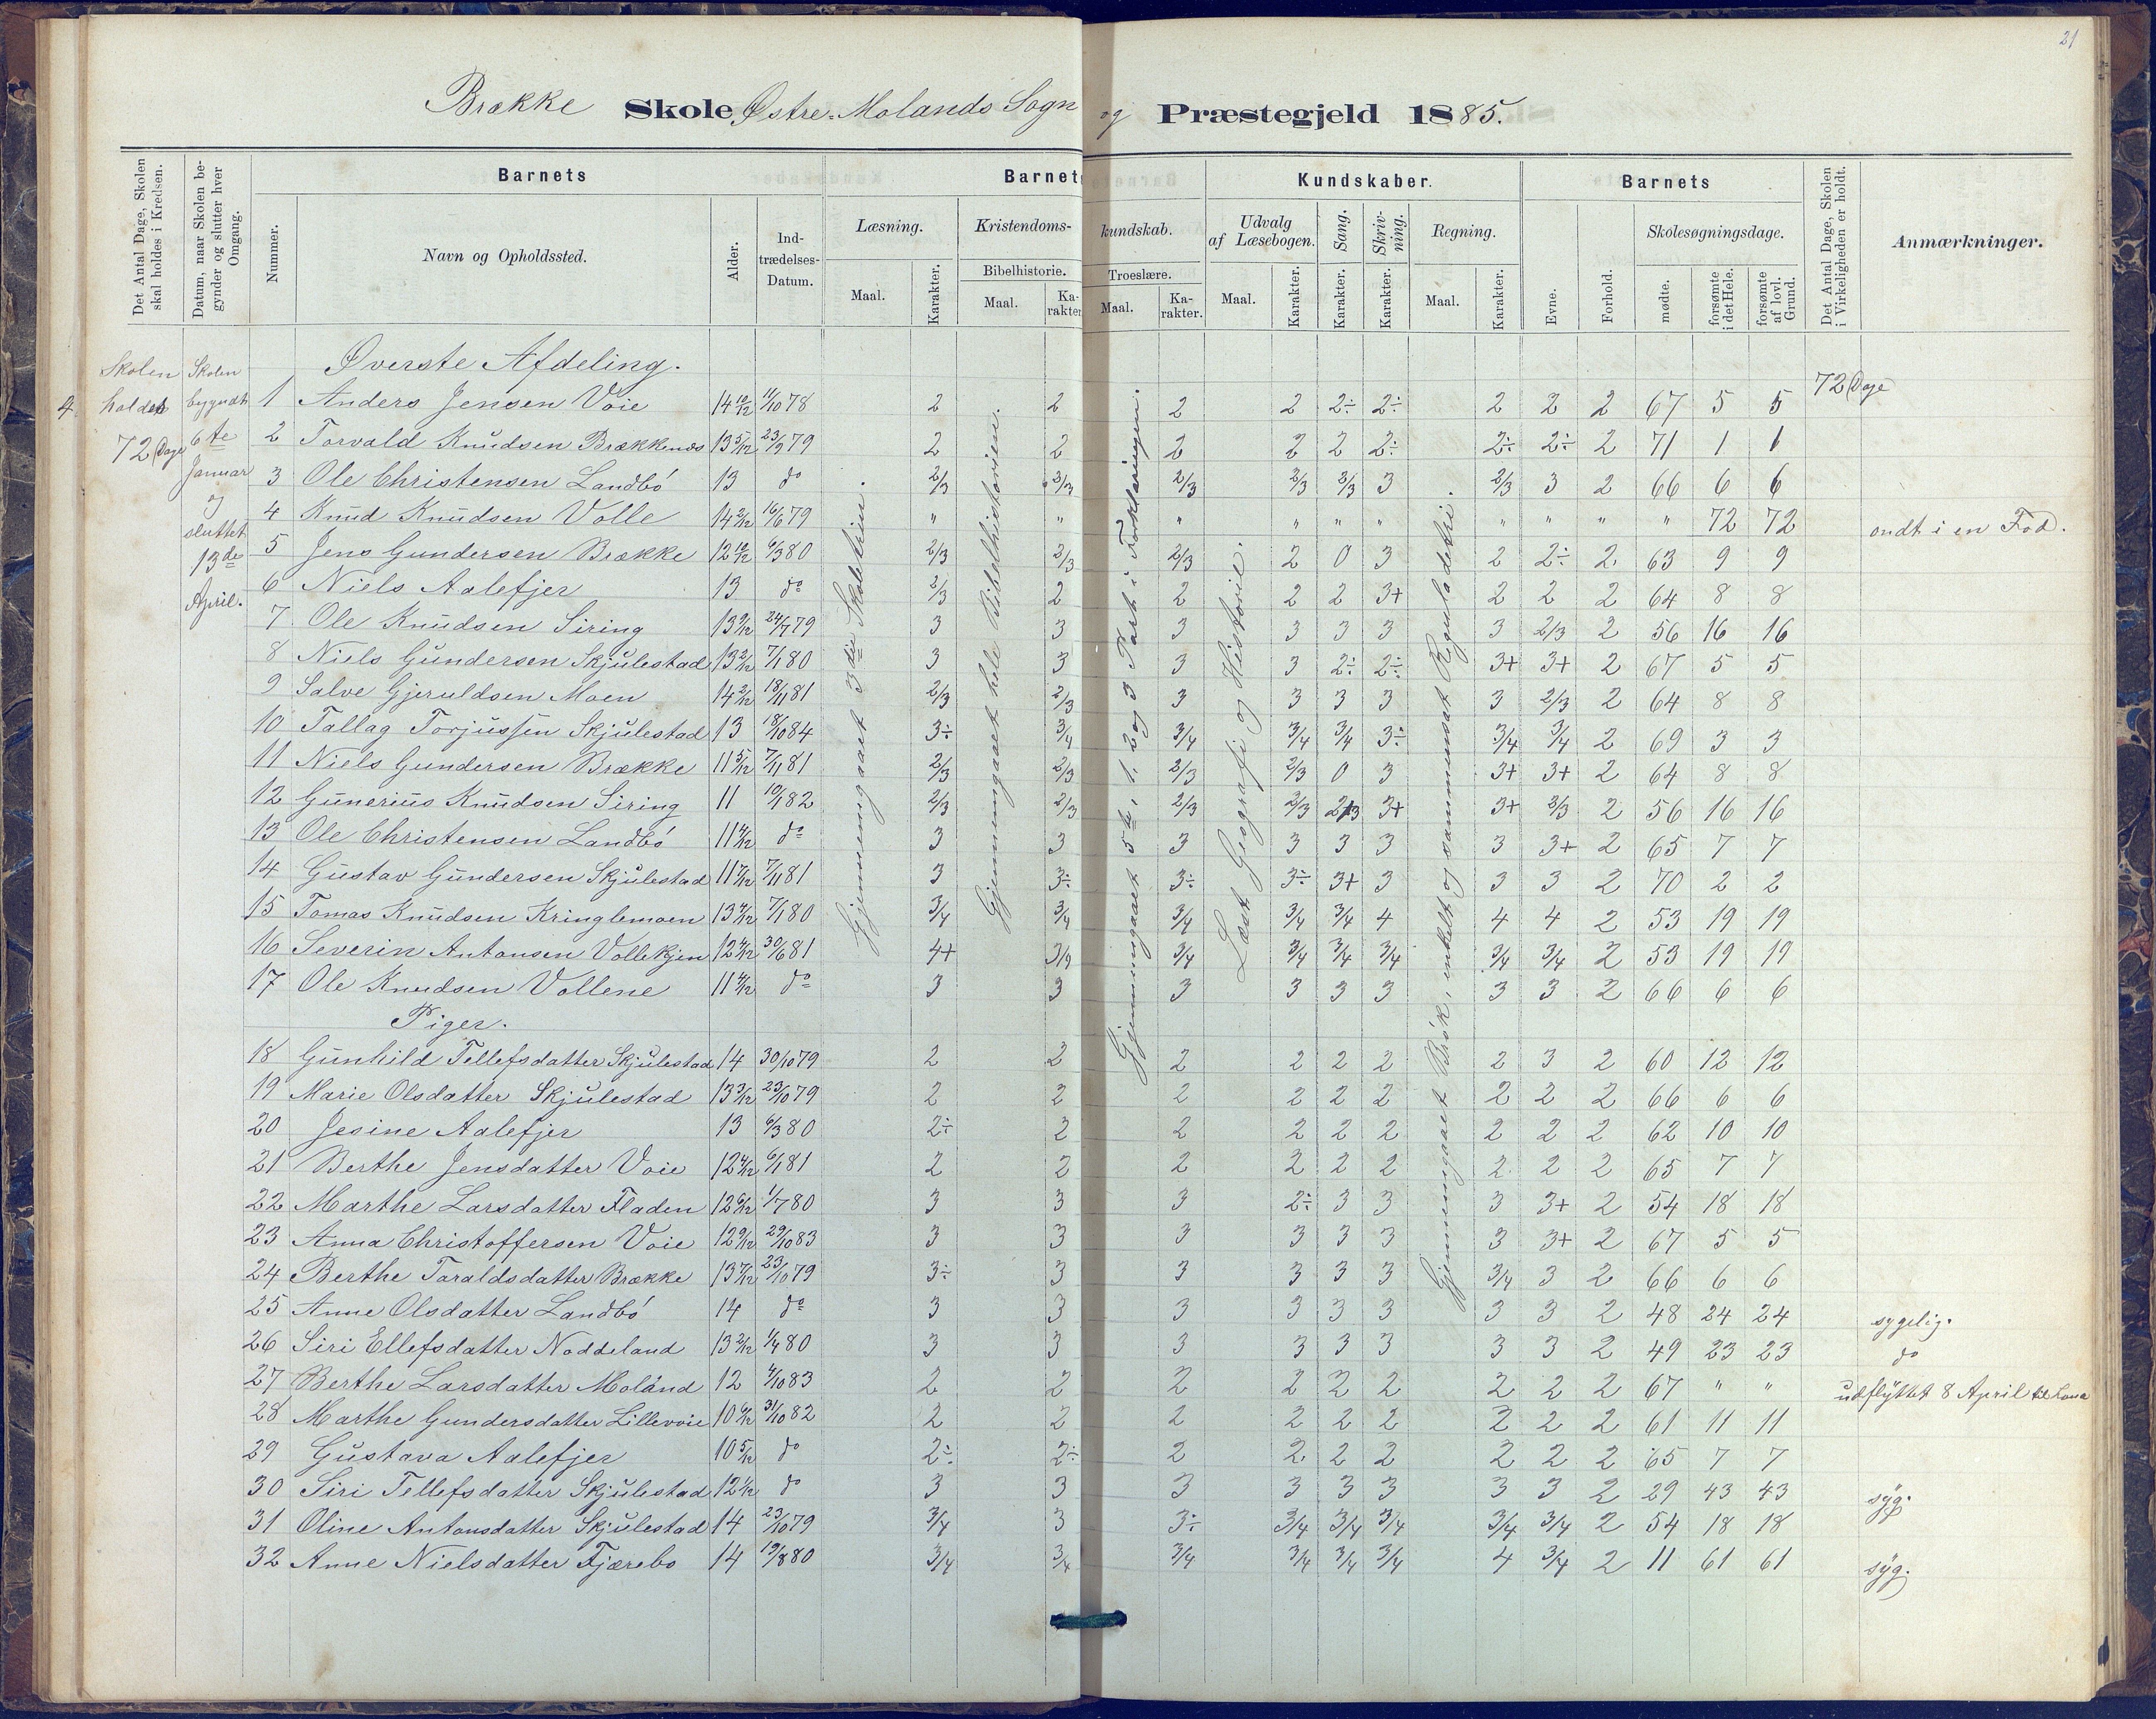 21
Brække Skole Østre-Molands Sogn og Præstegjeld 1885.
Det Antal Dage, Skolen skal holdes i Kredsen.
Datum, naar Skolen begynder og slutter hver Omgang.
Barnets
Nummer.
Navn og Opholdssted.
Alder.
Indtrædelses-Datum.
Barnets Kundskaber.
Læsning.
Maal.
Karakter.
Kristendomskundskab.
Bibelhistorie.
Maal.
Karakter.
Troeslære.
Maal.
Karakter.
Udvalg af Læsebogen.
Maal.
Karakter.
Sang.
Karakter.
Skrivning.
Karakter.
Regning.
Maal.
Karakter.
Barnets
Evne.
Forhold.
Skolesøgningsdage.
mødte.
forsømte i det Hele.
forsømte af lovl. Grund.
Det Antal Dage, Skolen i Virkeligheden er holdt.
Anmærkninger.
4.
Skolen
holdes
72 Dage
Skolen
begyndt
6te
Januar
og
sluttet
13de
April.
72 Dage
Gjennemgaaet 3die Skoletrin.
Gjennemgaaet hele Bibelhistorien.
Gjennemgaaet 5te, 1, 2 og 3 Part i Forklaringen.
Læst Geografi og Historie.
Gjennemgaaet Brøk, enkelt og sammensat Reguladetri.
Øverste Afdeling.
1 Anders Jensen Voie 14 10/12 11/10 78 2 2 2 2 2÷ 2÷ 2 2 2 67 5 5
2 Torvald Knudsen Brækkenes 13 5/12 23/9 79 2 2 2 2 2 2÷ 2÷ 2÷ 2 71 1 1
3 Ole Christensen Landbó 13 do 2/3 2/3 2/3 2/3 2/3 3 2/3 3 2 66 6 6
4 Knud Knudsen Volle 14 2/12 16/6 79 " " " " " " " " " " 72 72 ondt i en Fod.
5 Jens Gundersen Brække 12 10/12 6/3 80 2/3 2/3 2/3 2 0 3 2 2÷ 2 63 9 9
6 Niels Aalefjer 13 do 2/3 2 2 2 2 3+ 2 2 2 64 8 8
7 Ole Knudsen Siring 13 9/12 24/7 79 3 3 3 3 3 3 3 2/3 2 56 16 16
8 Niels Gundersen Skjulestad 13 2/12 7/1 80 3 3 3 3 2÷ 2÷ 3+ 3+ 2 67 5 5
9 Salve Gjeruldsen Moen 14 2/12 18/11 81 2/3 2/3 3 3 3 3 3 2/3 2 64 8 8
10 Tallag Torjussen Skjulestad 13 18/10 84 3÷ 3/4 3/4 3/4 3/4 3÷ 3/4 3/4 2 69 3 3
11 Niels Gundersen Brække 11 5/12 7/11 81 2/3 2/3 2/3 2/3 0 3 3+ 3+ 2 64 8 8
12 Gunerius Knudsen Siring 11 10/1 82 2/3 2/3 2/3 2/3 2/3 3+ 3+ 2/3 2 56 16 16
13 Ole Christensen Landbó 11 4/12 do 3 3 3 3 3 3 3 3+ 2 65 7 7
14 Gustav Gundersen Skjulestad 11 7/12 7/11 81 3 3÷ 3÷ 3÷ 3+ 3 3 3 2 70 2 2
15 Tomas Knudsen Kringlemoen 13 4/12 7/1 80 3/4 3/4 3/4 3/4 3/4 4 4 4 2 53 19 19
16 Severin Antonsen Vollekjen 12 4/12 30/6 81 4+ 3/4 3/4 3/4 3/4 3/4 3/4 3/4 2 53 19 19
17 Ole Knudsen Vollene 11 4/12 do 3 3 3 3 3 3 3 3 2 66 6 6
Piger.
18 Gunhild Tellefsdatter Skjulestad 14 30/10 79 2 2 2 2 2 2 2 3 2 60 12 12
19 Marie Olsdatter Skjulestad 13 3/12 23/10 79 2 2 2 2 2 2 2 2 2 66 6 6
20 Jesine Aalefjer 13 6/3 80 2÷ 2 2 2 2 2 2 2 2 62 10 10
21 Berthe Jensdatter Voie 12 4/12 6/1 81 2 2 2 2 2 2 2 2 2 65 7 7
22 Marthe Larsdatter Fladen 12 6/12 1/7 80 3 3 3 2÷ 3 3 3 3+ 2 54 18 18
23 Anna Christoffersen Voie 12 9/12 29/10 83 3 3 3 3 3 3 3 3+ 2 67 5 5
24 Berthe Taraldsdatter Brække 13 7/12 23/10 79 3÷ 3 3 3 3 3 3/4 3 2 66 6 6
25 Anne Olsdatter Landbó 14 do 3 3 3 3 3 3 3 3 2 48 24 24 sygelig.
26 Siri Ellefsdatter Noddeland 13 2/12 1/4 80 3 3 3 3 3 3 3 3 2 49 23 23 do
27 Berthe Larsdatter Moland 12 4/10 83 2 2 2 2 2 2 2 2 2 67 " " udflyttet 8 April til
28 Marthe Gundersdatter Lillevoie 10 6/12 31/10 82 2 2 2 2 2 2 2 2 2 61 11 11
29 Gustava Aalefjer 10 5/12 do 2÷ 2÷ 2 2 2 2 2 2 2 65 7 7
30 Siri Tellefsdatter Skjulestad 12 1/12 do 3 3 3 3 3 3 3 3 2 29 43 43 syg.
31 Oline Antonsdatter Skjulestad 14 23/10 79 3/4 3 3÷ 3/4 3/4 3/4 3/4 3/4 2 54 18 18
32 Anne Nielsdatter Fjærebo 14 19/8 80 3/4 3/4 3/4 3/4 3/4 3/4 4 3/4 2 11 61 61 syg.